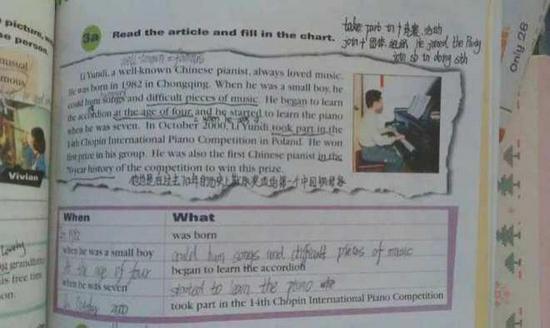 picture,
se person.
musical
mous
Vivian
3a Read the article and fill in the chart.
take part in + 比赛, 活动
join + 团体, 组织 He joined the Party
join sb in doing sth
Only 28
well-known = famous
Li Yundi, a well-known Chinese pianist, always loved music.
He was born in 1982 in Chongqing. When he was a small boy, he
could hum songs and difficult pieces of music. He began to learn
the accordion at the age of four, and he started to learn the piano
when he was seven. In October 2000, Li Yundi took part in the
14th Chopin International Piano Competition in Poland. He won
first prize in his group. He was also the first Chinese pianist in the
70-year history of the competition to win this prize.
When What
in 1982 was born
when he was a small boy could hum songs and difficult pieces of music
at the age of four began to learn the accordion
when he was seven started to learn the piano
in October 2000 took part in the 14th Chopin International Piano Competition